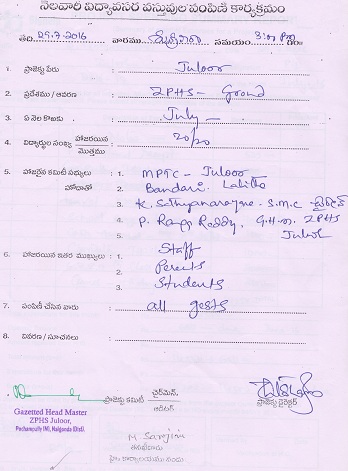 నెలవారీ విద్యావసర వస్తువుల పంపిణి కార్యక్రమం
తేది. 29.7.2016 వారము శుక్రవారం సమయం 3:00 PM గం॥
1. ప్రాజెక్టు పేరు : Juloor
2. ప్రదేశము / ఆవరణ : ZPHS - Ground
3. ఏ నెల కొఱకు : July -
4. విద్యార్థుల సంఖ్య హాజరయిన / మొత్తము : 20/20
5. హాజరైన కమిటీ సభ్యులు : 1. MPTC - Juloor
హోదాతో 2. Bandari. Lalitha
3. K. Sathyanarayana - S.M.C
4. P. Ranga Reddy, G.H.M. ZPHS
5. Juloor
6. హాజరయిన ఇతర ముఖ్యులు : 1. Staff
2. Perents
3. Students
7. పంపిణీ చేసిన వారు : all gests
8. వివరణ / సూచనలు :
ప్రాజెక్టు కమిటీ చైర్‌మెన్. / ఆడిటర్
ప్రాజెక్టు డైరెక్టర్
Gazetted Head Master
ZPHS Juloor,
Pochampally (M), Nalgonda (Dist).
M Sarojini